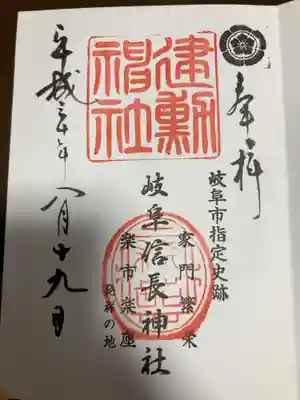 奉拝
岐阜市指定史跡
家門繁栄
建勲神社
岐阜信長神社
楽市楽座
発祥の地
平成三十年八月十九日